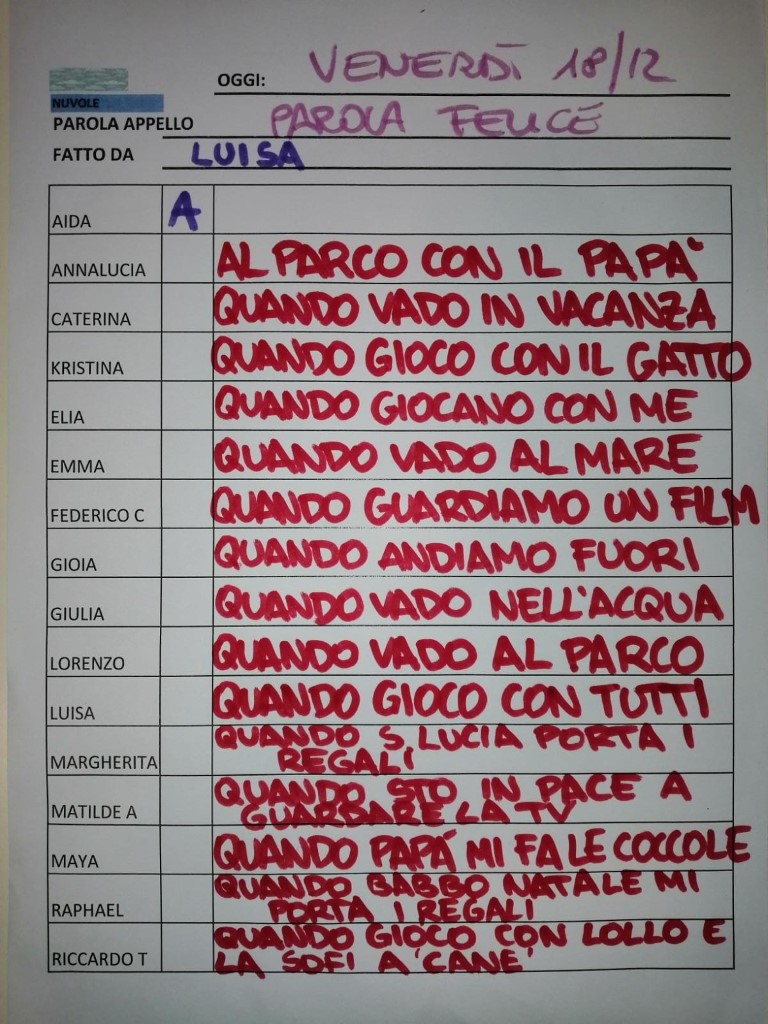 OGGI: VENERDÌ 18/12
NUVOLE
PAROLA APPELLO PAROLA FELICE
FATTO DA LUISA
AIDA A
ANNALUCIA AL PARCO CON IL PAPA'
CATERINA QUANDO VADO IN VACANZA
KRISTINA QUANDO GIOCO CON IL GATTO
ELIA QUANDO GIOCANO CON ME
EMMA QUANDO VADO AL MARE
FEDERICO C QUANDO GUARDIAMO UN FILM
GIOIA QUANDO ANDIAMO FUORI
GIULIA QUANDO VADO NELL'ACQUA
LORENZO QUANDO VADO AL PARCO
LUISA QUANDO GIOCO CON TUTTI
MARGHERITA QUANDO S. LUCIA PORTA I
REGALI
MATILDE A QUANDO STO IN PACE A
GUARDARE LA TV
MAYA QUANDO PAPÁ MI FA LE COCCOLE
RAPHAEL QUANDO BABBO NATALE MI
PORTA I REGALI
RICCARDO T QUANDO GIOCO CON LOLLO E
LA SOFI A 'CANE'